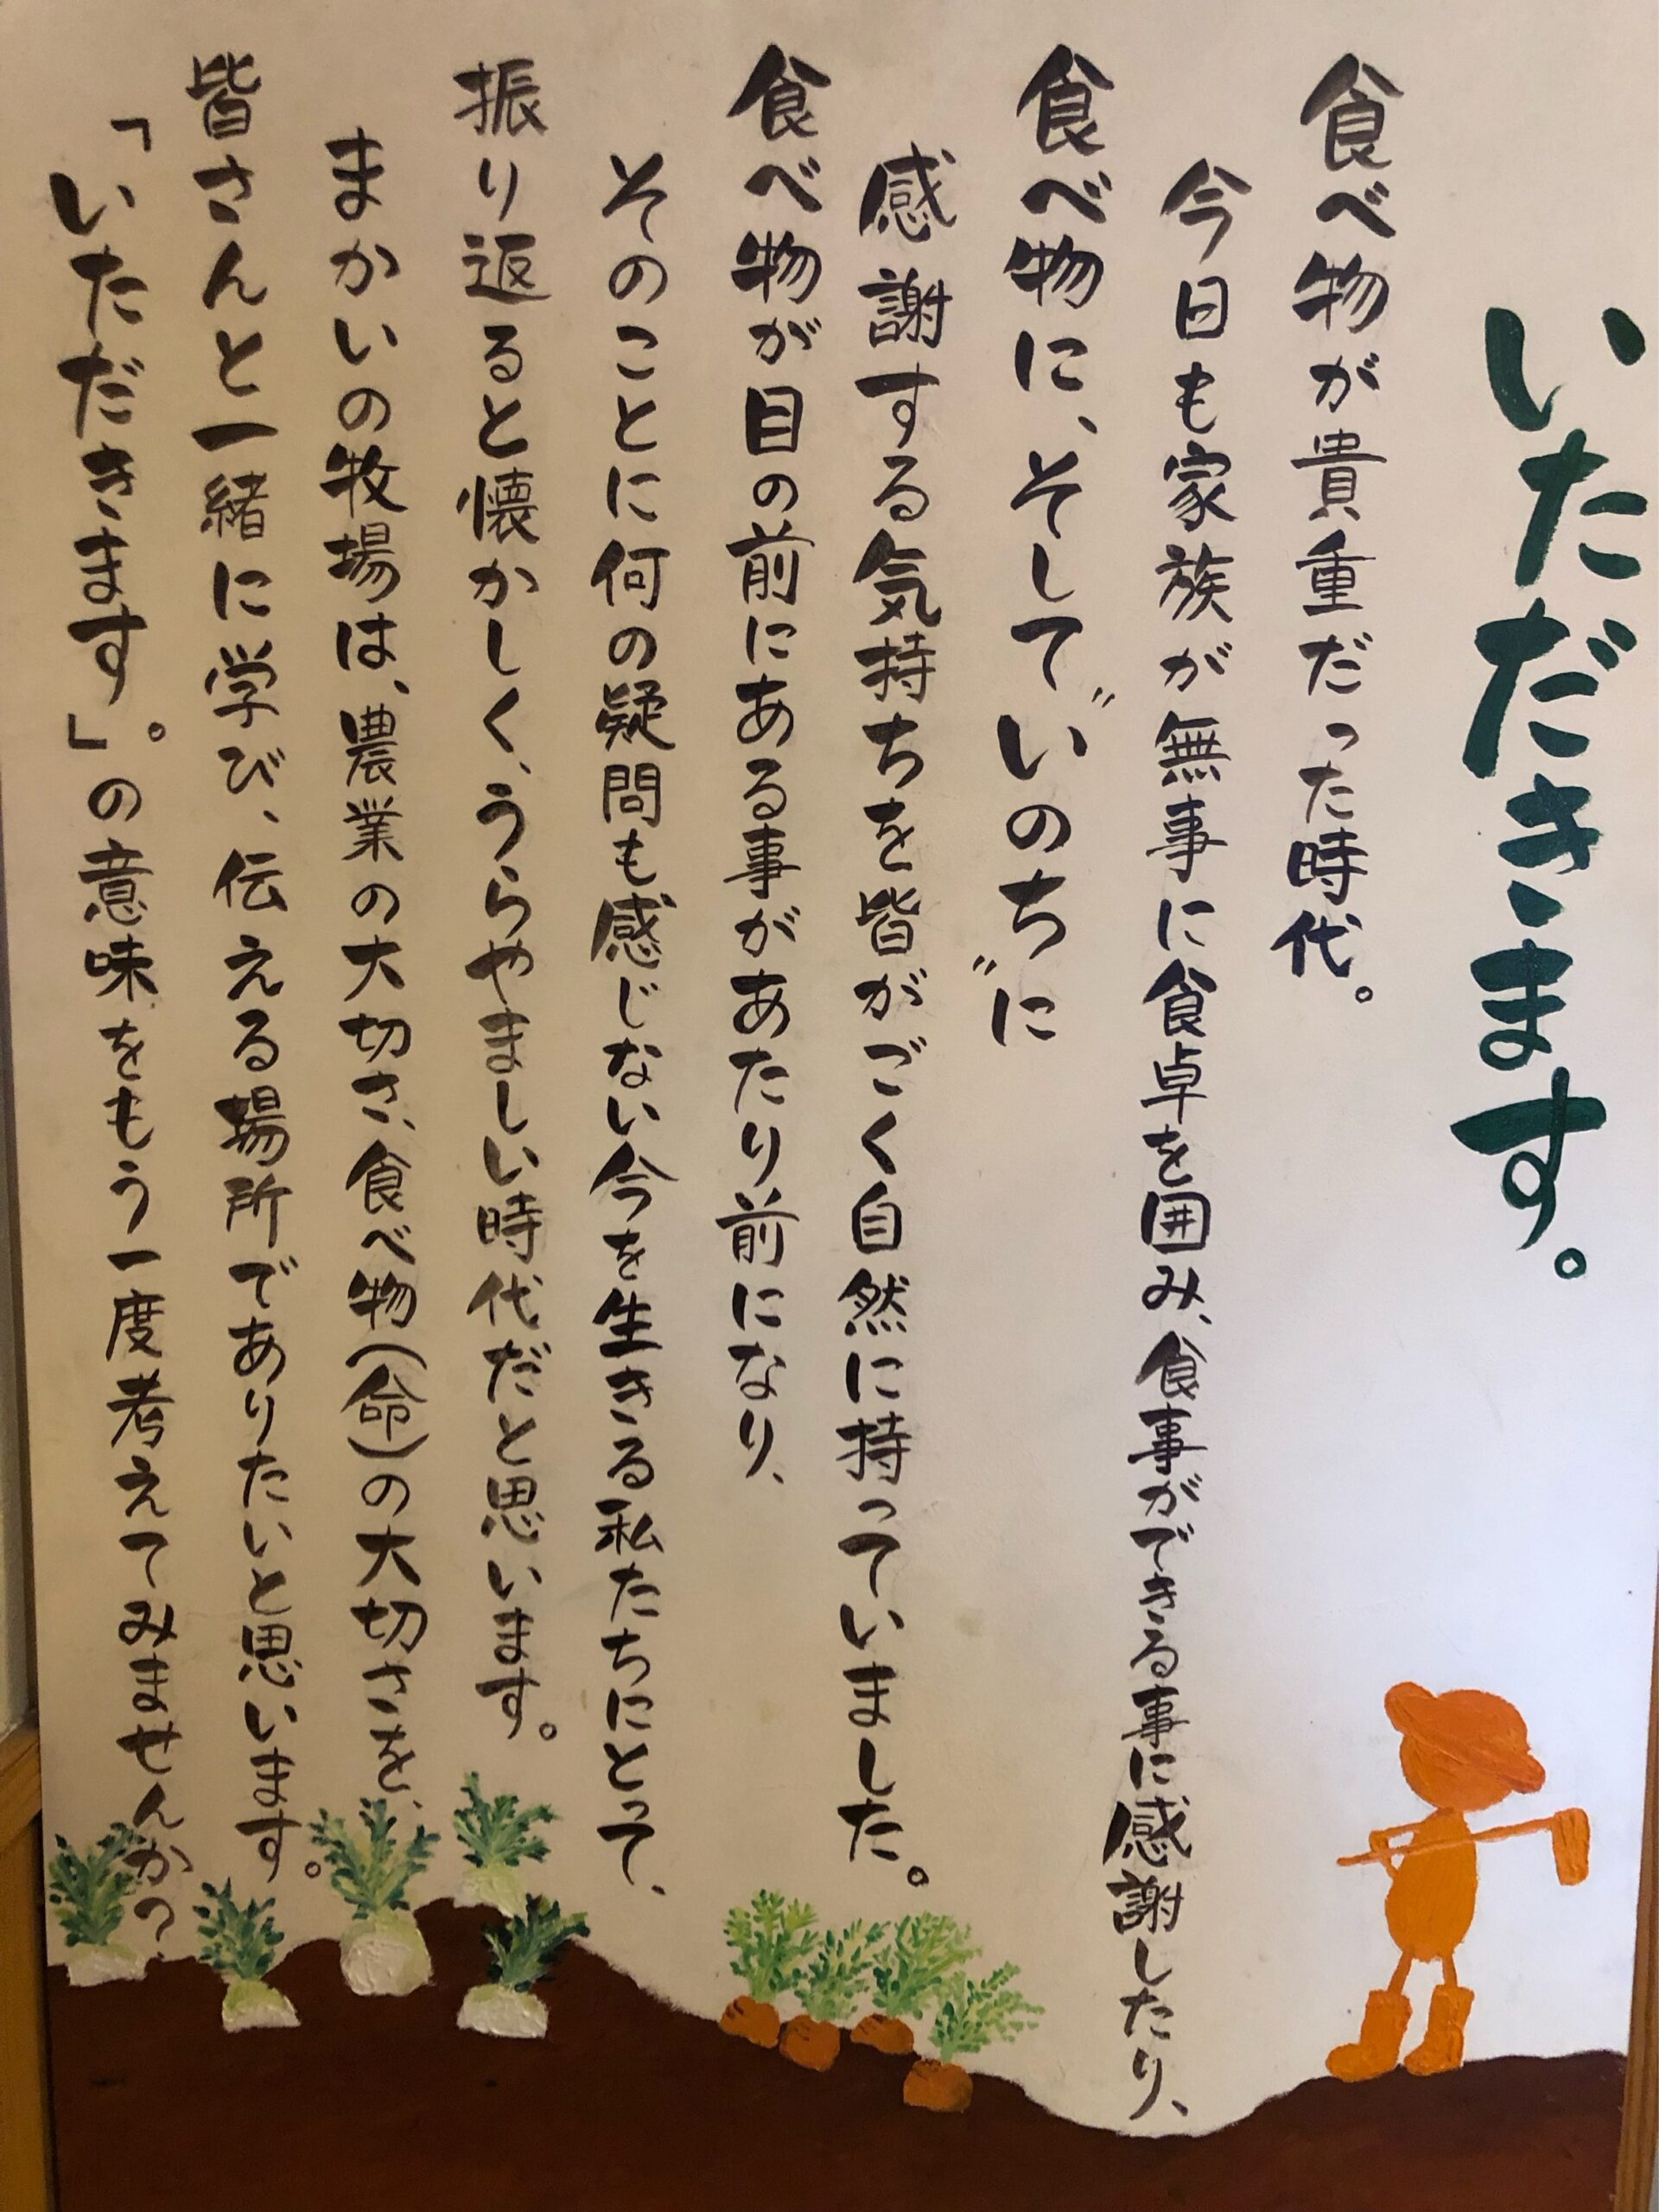 いただきます。
食べ物が貴重だった時代。
今日も家族が無事に食卓を囲み、食事ができる事に感謝したり、
食べ物に、そして〝いのち〟に
感謝する気持ちを皆がごく自然に持っていました。
食べ物が目の前にある事があたり前になり、
そのことに何の疑問も感じない今を生きる私たちにとって、
振り返ると懐かしく、うらやましい時代だと思います。
まかいの牧場は、農業の大切さ、食べ物(命)の大切さを、
皆さんと一緒に学び、伝える場所でありたいと思います。
「いただきます」。の意味をもう一度考えてみませんか？